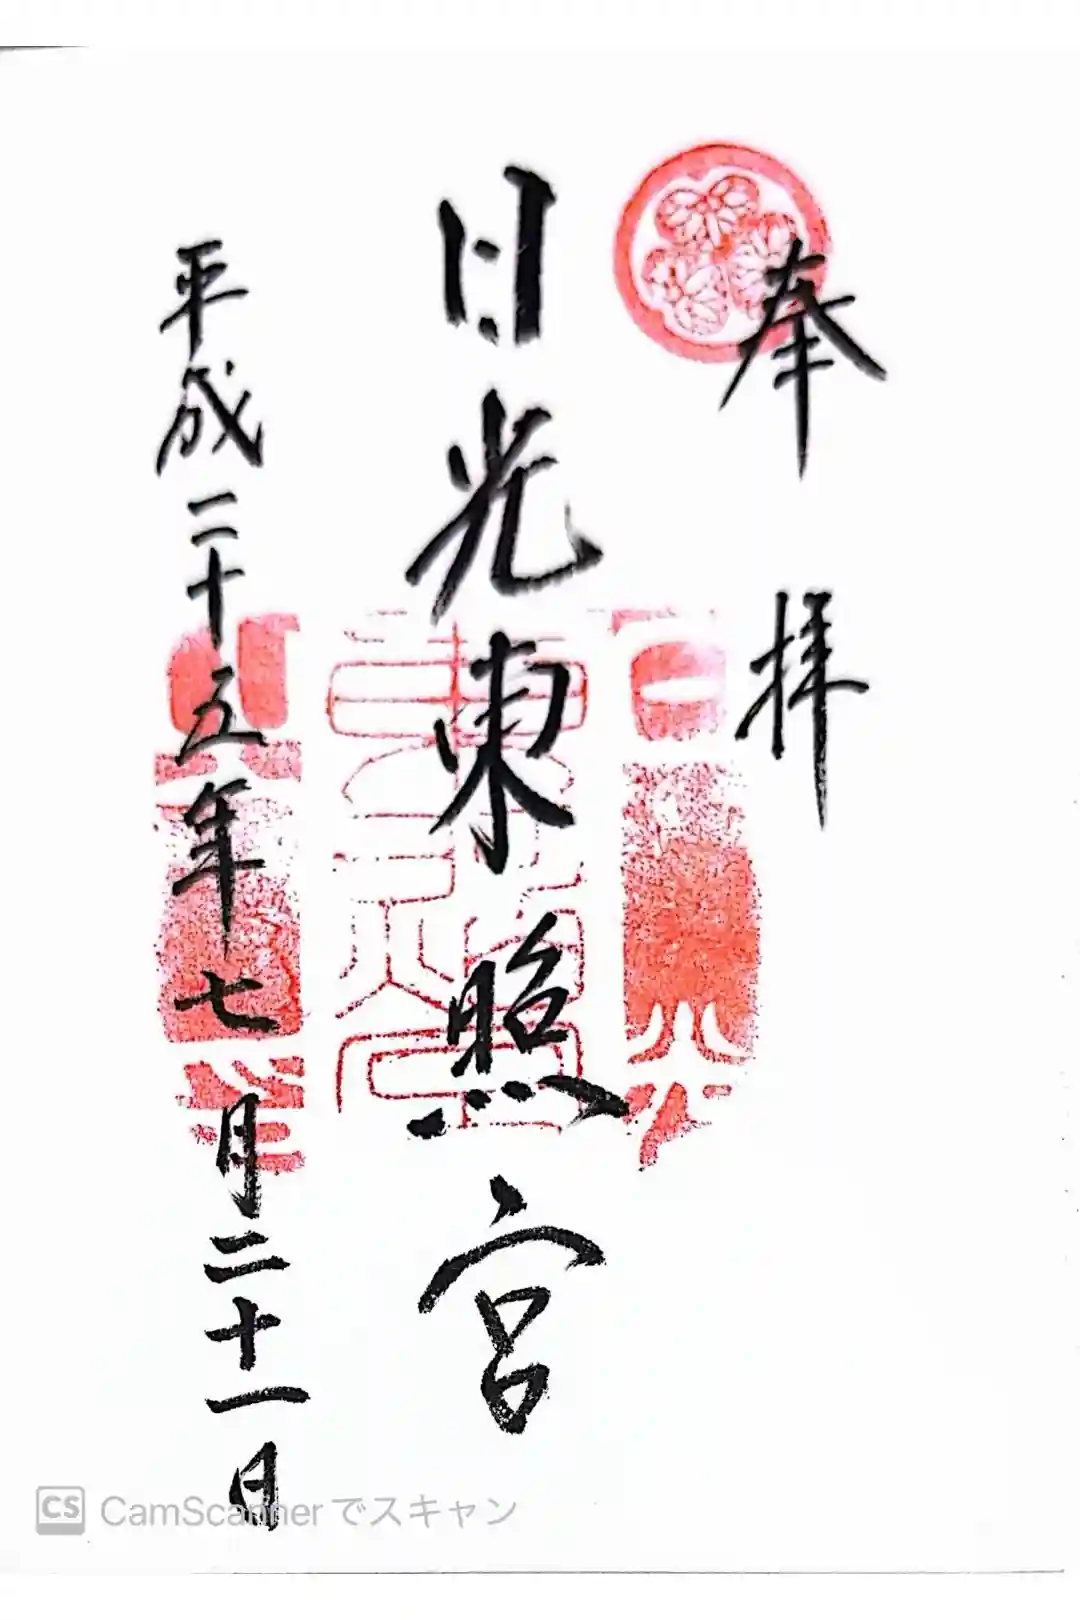 奉拝
日光東照宮
平成二十五年七月二十一日
CS CamScannerでスキャン